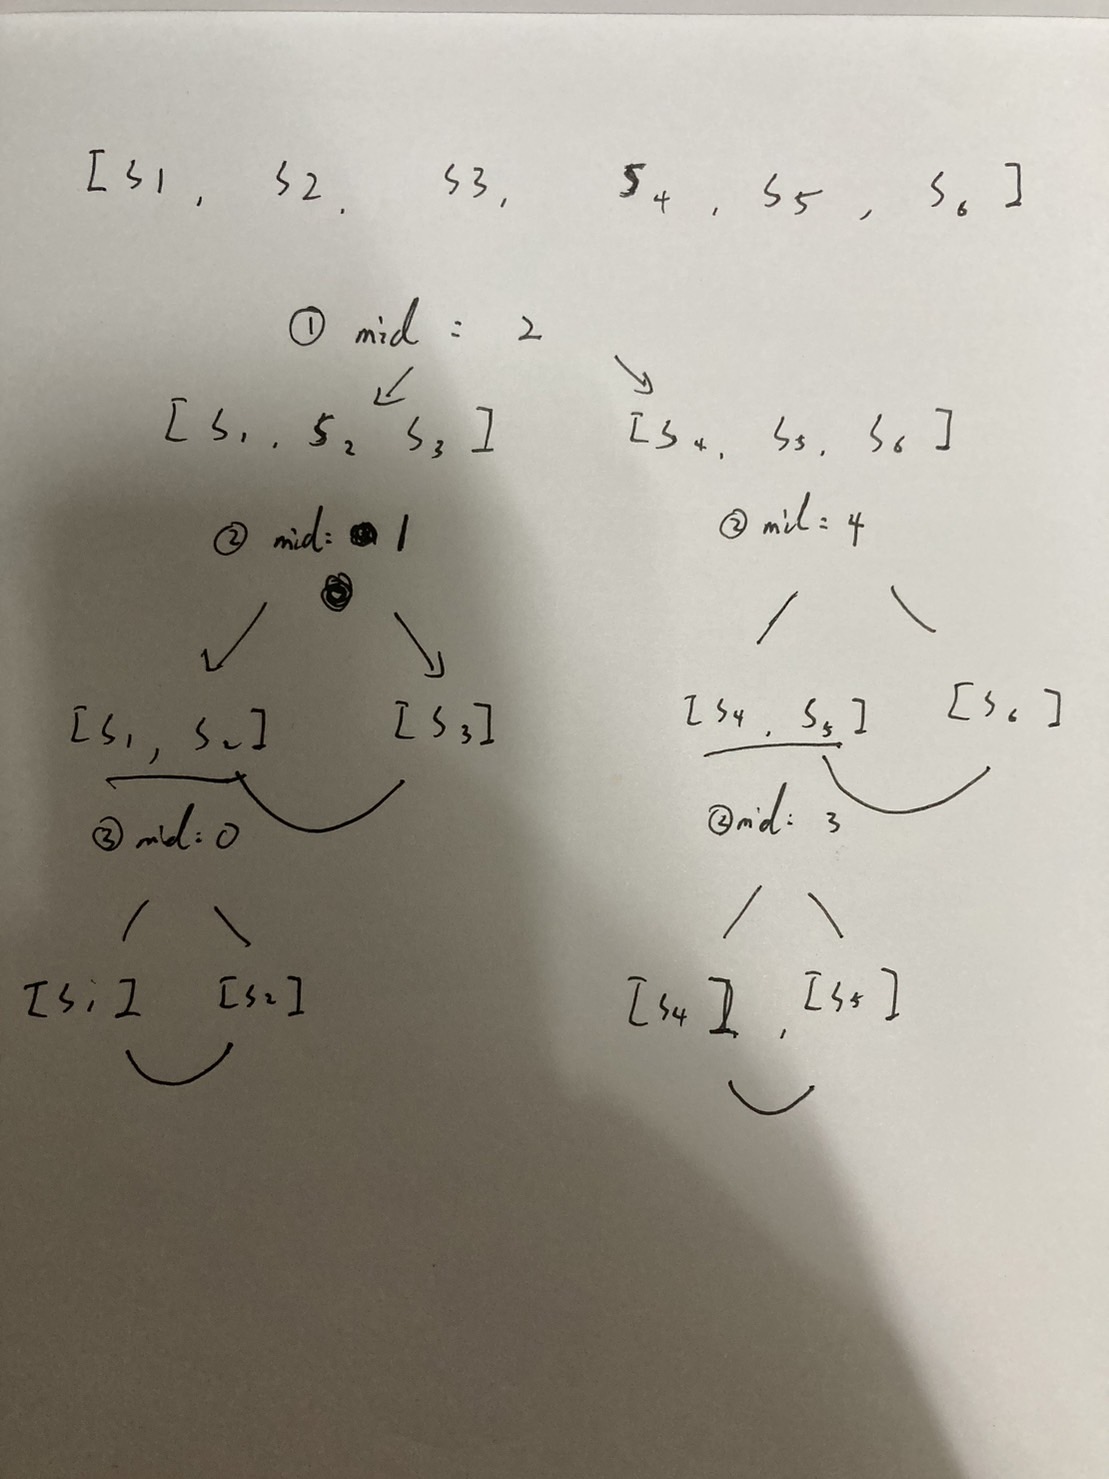 [ s1 , s2 , s3 , s4 , s5 , s6 ]
① mid : 2
[ s1 , s2 s3 ] [ s4 , s5 , s6 ]
② mid : 1 ② mid : 4
[ s1 , s2 ] [ s3 ] [ s4 , s5 ] [ s6 ]
③ mid : 0 ② mid : 3
[ s1 ] [ s2 ] [ s4 ] , [ s5 ]